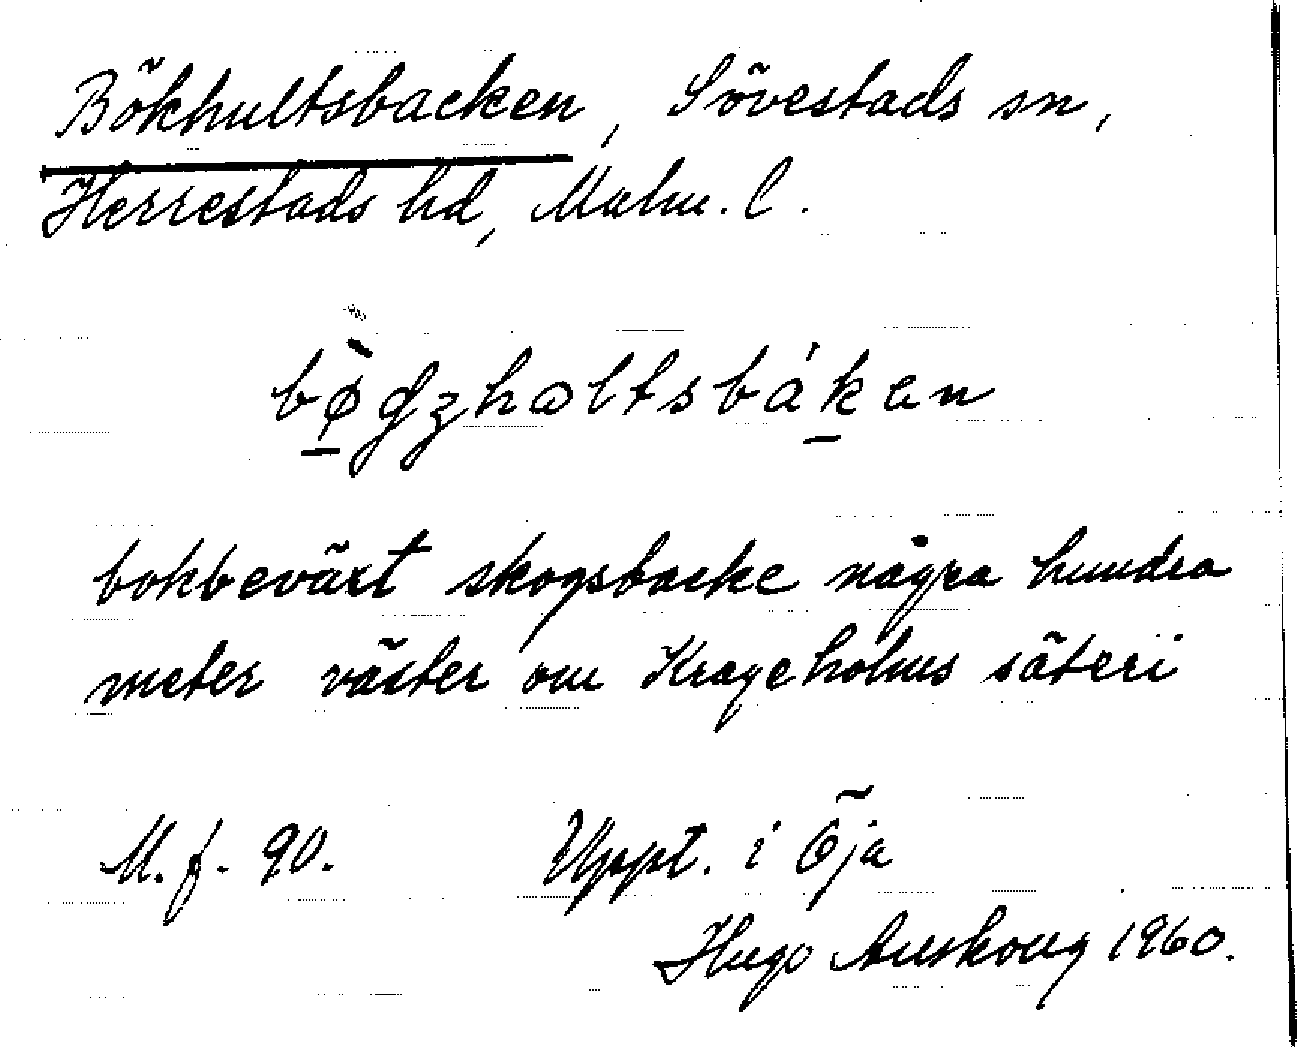 Bökhultsbacken, Sövestads sn,
Herrestads hd, Malm. l.
bø̀gzhɷltsbákan
bokbeväxt skogsbacke några hundra
meter väster om Krageholms säteri
M. f. 90. Uppt. i Öja
Hugo Areskoug 1960.